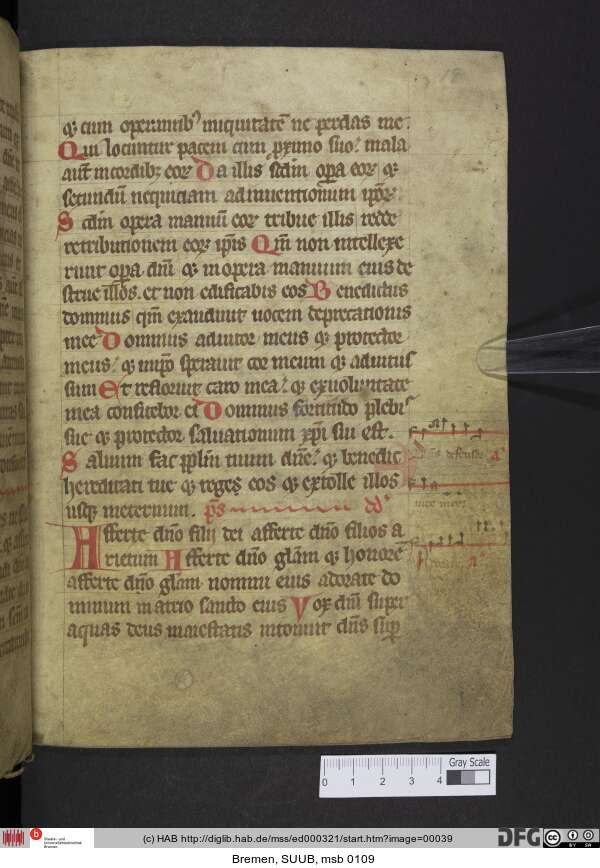 ⁊ cum operantib᷒ iniquitatē ne perdas me.
Qui locuntur pacem cum ꝓximo suo. mala
aūt in cordibꝫ eoꝝ Da illis scđm oꝑa eoꝝ ⁊
secundū nequiciam adinuentionum ipoꝝ
Scđm opera manuū eoꝝ tribue illis redde
retributionem eoꝝ ip̄is Qm̄ non intellexe
runt oꝑa dn̄i ⁊ in opera manuum eius de
strue illos. et non edificabis eos Benedictus
dominus qm̄ exaudiuit uocem deprecationis
mee Dominus adiutor meus ⁊ protector
meus. ⁊ in ip̄o sperauit cor meum ⁊ adiutus
sum Et refloruit caro mea. ⁊ ex uoluntate
mea confitebor ei Dominus fortitudo plebis
sue ⁊ protector saluationum xp̄i sui est.
Saluum fac pp̄lm tuum dn̄e. ⁊ benedic
hereditati tue ⁊ rege eos ⁊ extolle illos
usqꝫ in eternum. ps dd
Afferte dn̄o filii dei afferte dn̄o filios a
rietum Afferte dn̄o gl̄am ⁊ honorē
afferte dn̄o gl̄am nomini eius adorate do
minum in atrio sancto eius Vox dn̄i super
aquas deus maiestatis intonuit dn̄s suꝑ
defensor
mee
18
Gray Scale
0 1 2 3 4
Staats- und
Universitätsbibliothek
Bremen
(c) HAB http://diglib.hab.de/mss/ed000321/start.htm?image=00039
DFG
cc BY SA
Bremen, SUUB, msb 0109